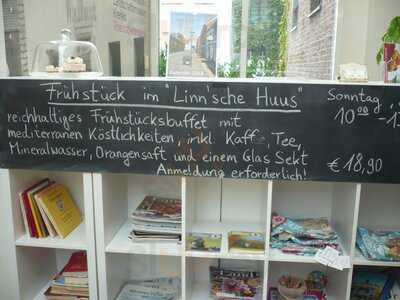 Frühstück im "Linn'sche Huus"
reichhaltiges Frühstücksbuffet mit
mediterranen Köstlichkeiten, inkl. Kaffee, Tee,
Mineralwasser, Orangensaft und einem Glas Sekt
Anmeldung erforderlich!
Sonntag
10⁰⁰ -
€ 18,90